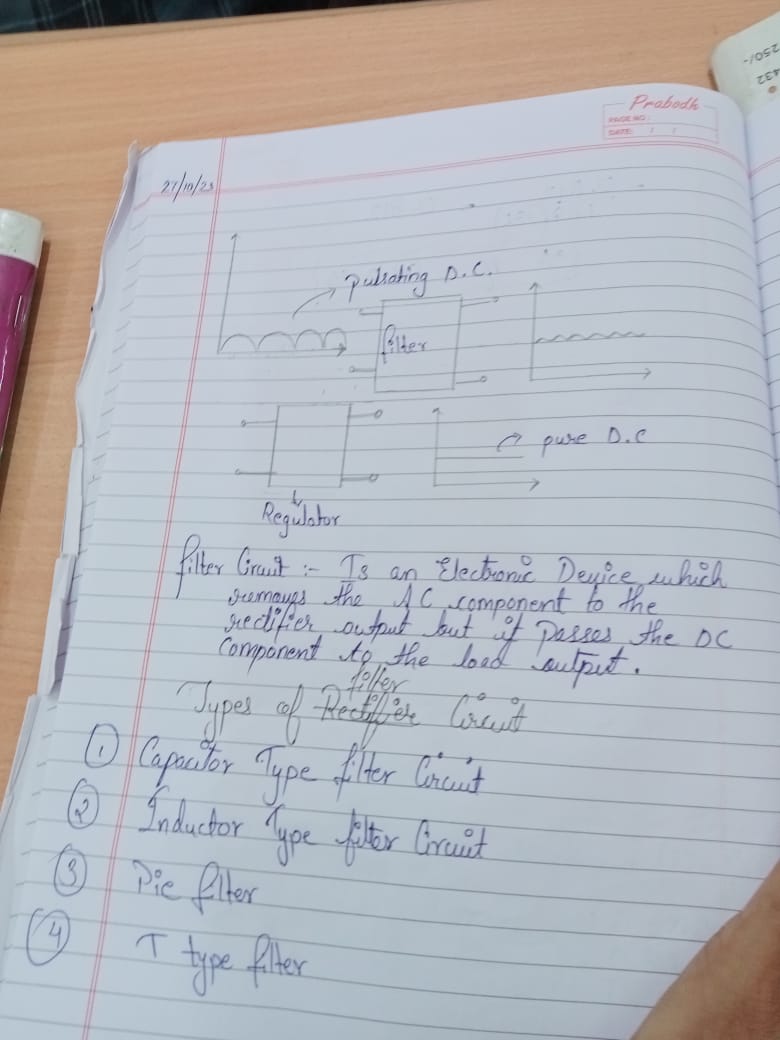 250/-
432
Prabodh
PAGE NO:
DATE: / /
27/10/23
pulsating D.C.
filter
pure D.C
Regulator
filter Circuit :- Is an Electronic Device which
removes the AC component to the
rectifier output but it passes the DC
Component to the load output.
filler
Types of Rectifier Circuit
1 Capacitor Type filter Circuit
2 Inductor Type filter Circuit
3 Pie filter
4 T type filter